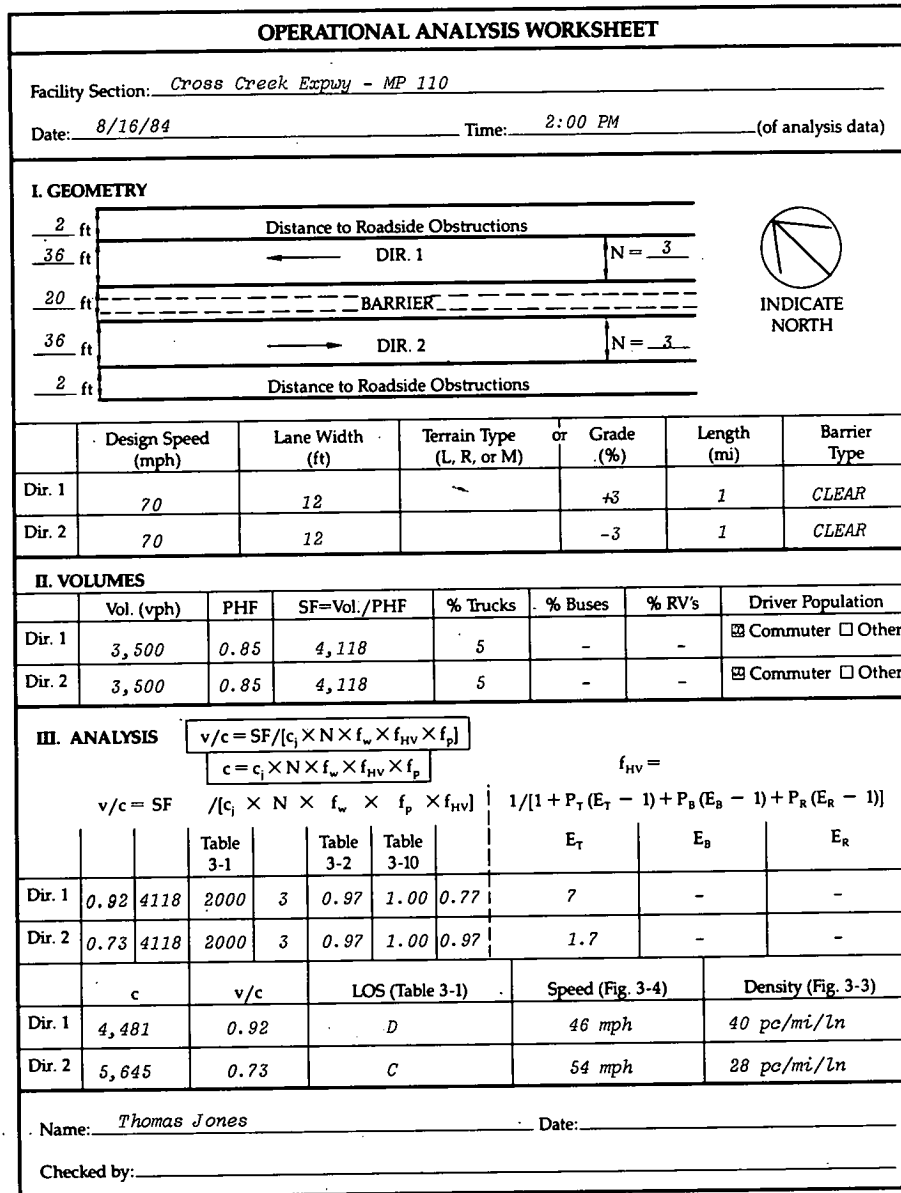 OPERATIONAL ANALYSIS WORKSHEET
Facility Section: Cross Creek Expwy - MP 110
Date: 8/16/84 Time: 2:00 PM (of analysis data)
I. GEOMETRY
2 ft Distance to Roadside Obstructions
36 ft DIR. 1 N = 3
20 ft BARRIER
INDICATE NORTH
36 ft DIR. 2 N = 3
2 ft Distance to Roadside Obstructions
Design Speed (mph) Lane Width (ft) Terrain Type (L, R, or M) or Grade (%) Length (mi) Barrier Type
Dir. 1 70 12 +3 1 CLEAR
Dir. 2 70 12 -3 1 CLEAR
II. VOLUMES
Vol. (vph) PHF SF=Vol./PHF % Trucks % Buses % RV's Driver Population
Dir. 1 3,500 0.85 4,118 5 - - ☒ Commuter ☐ Other
Dir. 2 3,500 0.85 4,118 5 - - ☒ Commuter ☐ Other
III. ANALYSIS v/c = SF/[cj × N × fw × fHV × fp]
c = cj × N × fw × fHV × fp fHV =
v/c = SF /[cj × N × fw × fp × fHV] 1/[1 + PT (ET − 1) + PB (EB − 1) + PR (ER − 1)]
Table 3-1 Table 3-2 Table 3-10 ET EB ER
Dir. 1 0.92 4118 2000 3 0.97 1.00 0.77 7 - -
Dir. 2 0.73 4118 2000 3 0.97 1.00 0.97 1.7 - -
c v/c LOS (Table 3-1) Speed (Fig. 3-4) Density (Fig. 3-3)
Dir. 1 4,481 0.92 D 46 mph 40 pc/mi/ln
Dir. 2 5,645 0.73 C 54 mph 28 pc/mi/ln
Name: Thomas Jones Date:
Checked by: